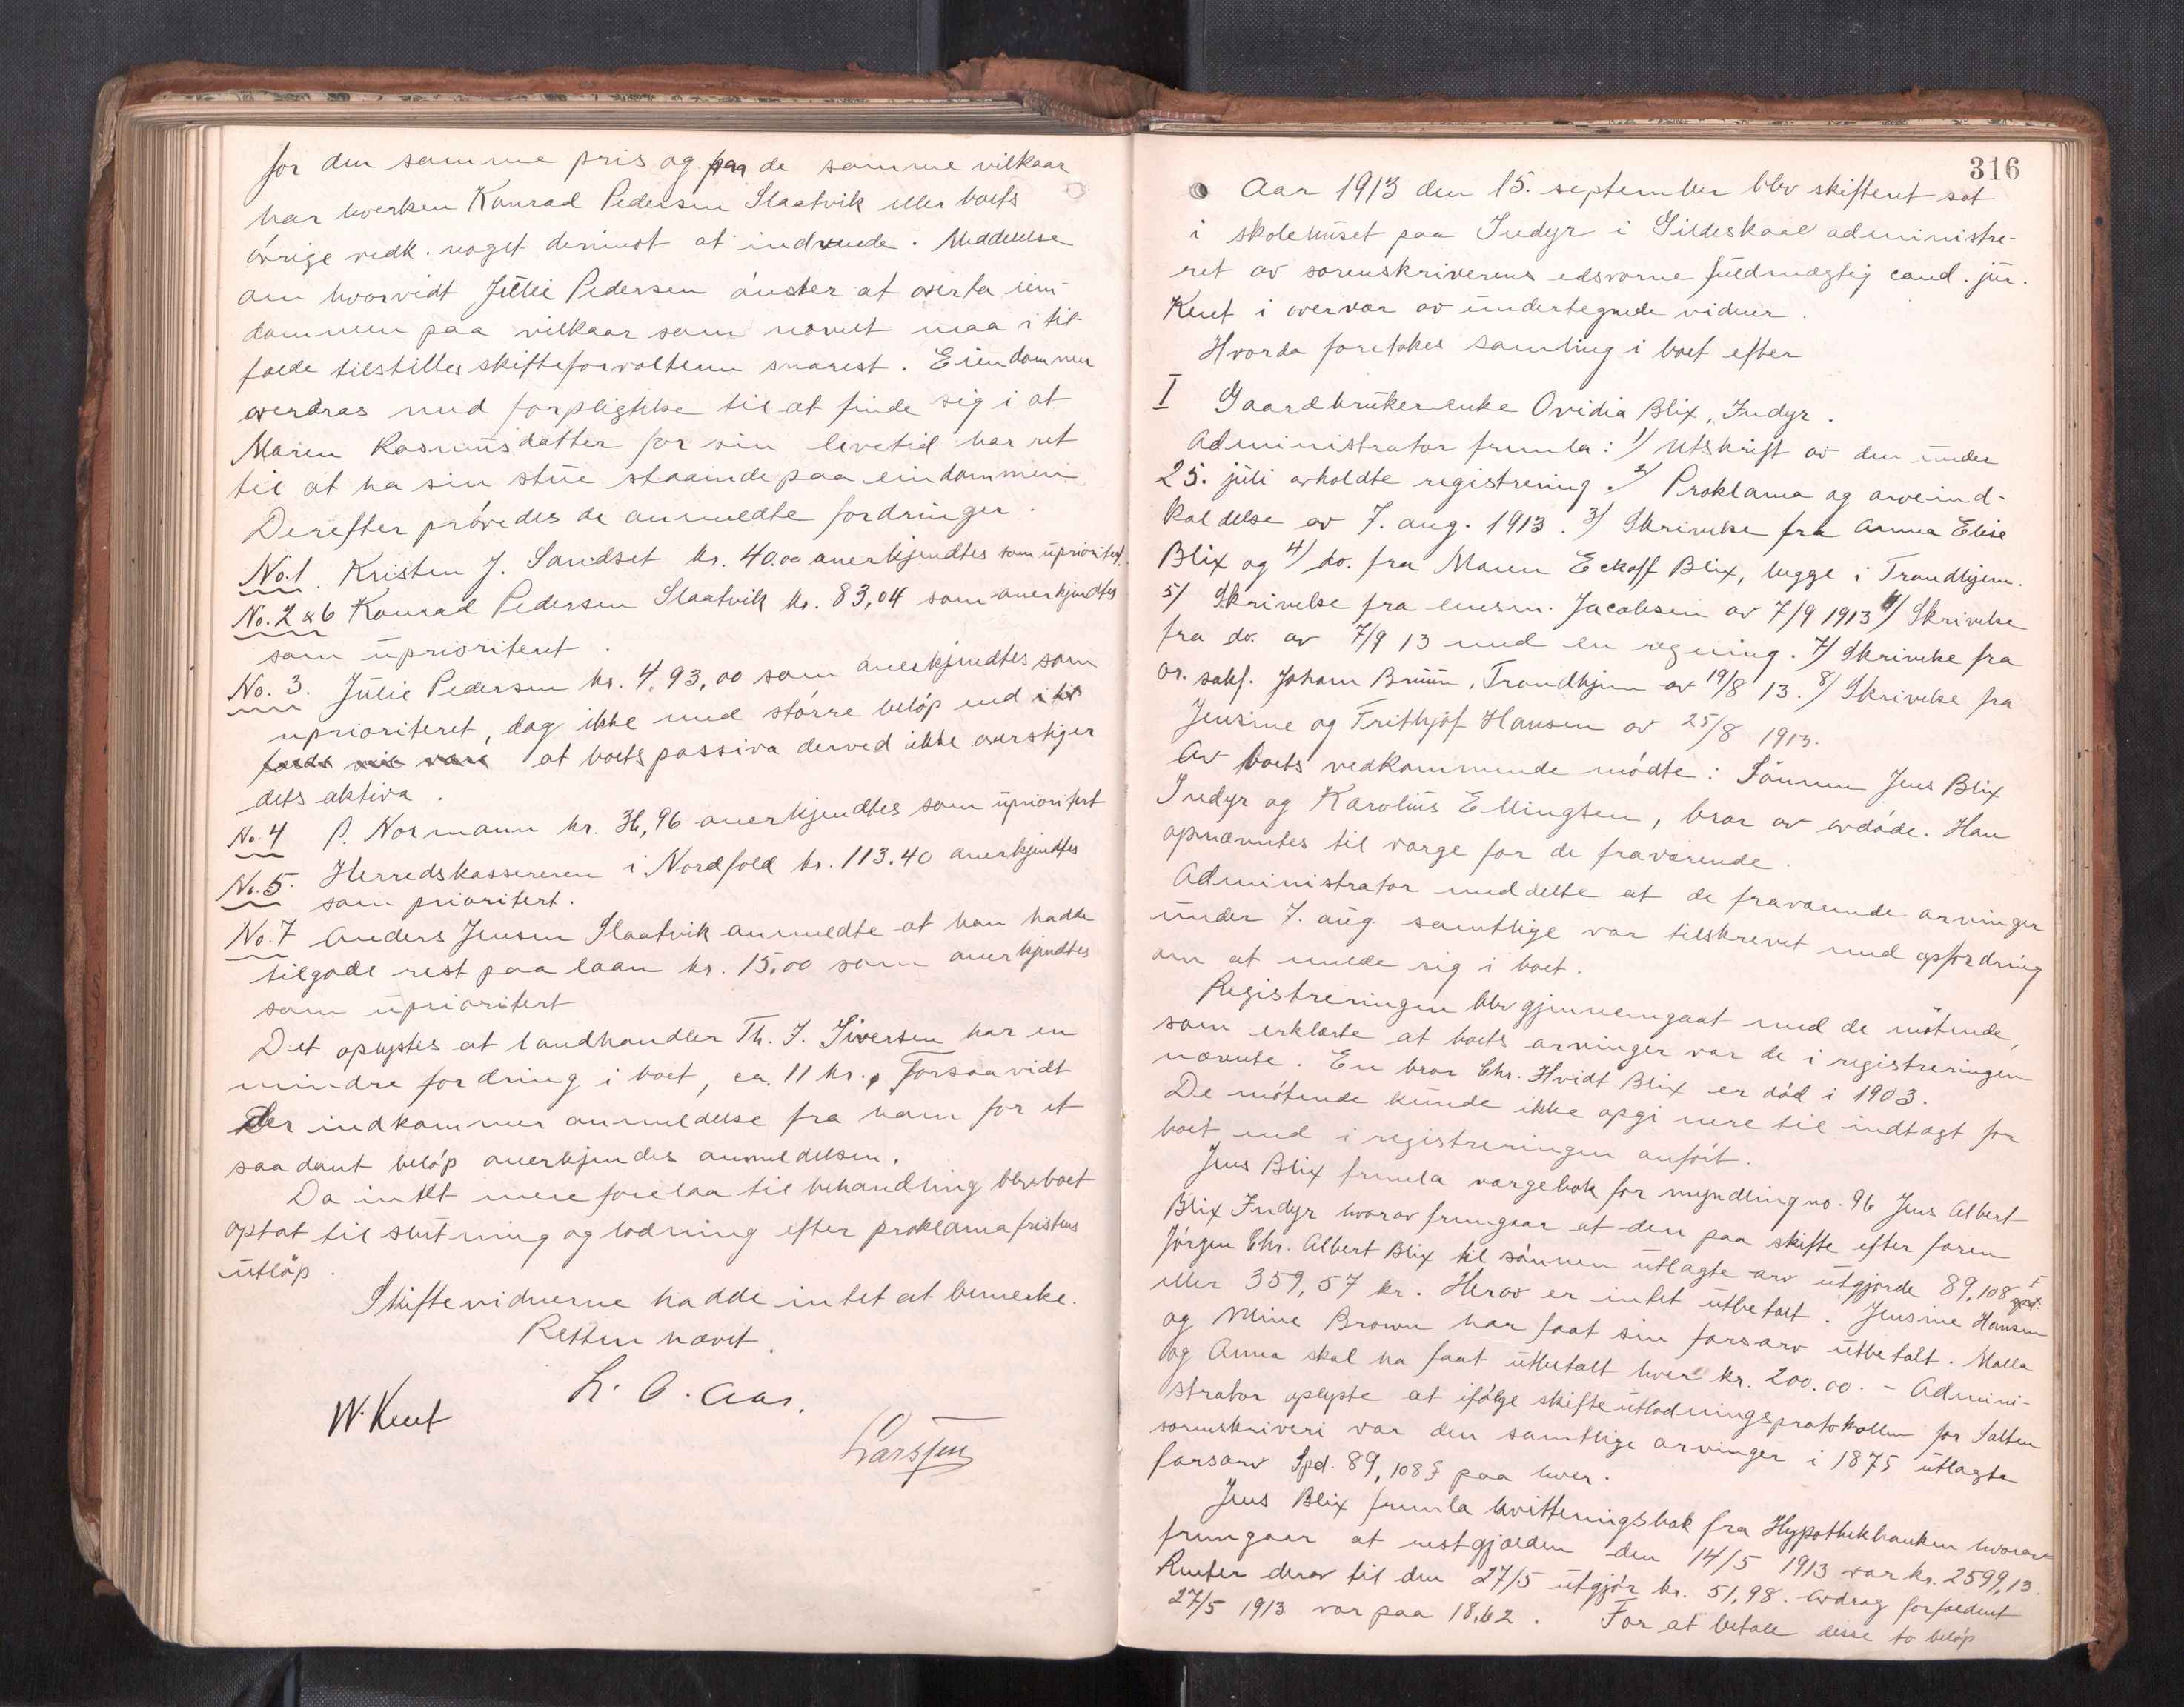 for den samme pris og paa de samme vilkaar
har hverken Konrad Pedersen Slaatvik eller boets
øvrige vedk. noget derimot at indvende. Meddelelse
om hvorvidt Julie Pedersen ønsker at overta eien-
dommen paa vilkaar som nævnt maa i til-
fælde tilstilles skifteforvalteren snarest. Eiendommen
overdras med forpligtelse til at finde sig i at
Maren Rasmusdatter for sin levetid har ret
til at ha sin stue staaende paa eindommen
Derefter prøvedes de anmeldte fordringer.
No. 1. Kristen J. Sandset kr. 40.00 anerkjendtes som uprioritert.
No. 2 & 6 Konrad Pedersen Slaatvik kr. 83,04 som anerkjendtes
som uprioriteret.
No. 3. Julie Pedersen kr. 4,93,00 som anerkjendtes som
uprioriteret, dog ikke med større beløp end i til
fælde vil være at boets passiva derved ikke overstiger
dets aktiva.
No. 4 P. Normann kr. 36,96 anerkjendtes som uprioritert
No. 5. Herredskassereren i Nordfold kr. 113.40 anerkjendtes
som prioritert.
No. 7 Anders Jensen Slaatvik anmeldte at han hadde
tilgode rest paa laan kr. 15,00 som anerkjendtes
som uprioritert
Det oplystes at landhandler Th. J. Siversen har en
mindre fordring i boet, ca. 11 kr., Forsaavidt
der indkommer anmeldelse fra ham for et
saadant beløp anerkjendes anmeldelsen.
Da intet mere forelaa til behandling blev boet
optat til slutning og lodning efter proklamafristens
utløp.
Skiftevidnerne hadde intet at bemerke.
Retten hævet.
W. Keut L. O. Aas.
Larssen
316
Aar 1913 den 15. september blev skifteret sat
i skolehuset paa Indyr i Gildeskaal administre-
ret av sorenskriverens edsvorne fuldmægtig cand. jur.
Keut i overvær av undertegnede vidner.
Hvorda foretokes samling i boet efter
I Gaardbrukerenke Ovidia Blix, Indyr.
Administrator fremla: 1) Utskrift av den under
25. juli avholdte registrering. 2) Proklama og arveind-
kaldelse av 7. aug. 1913. 3) Skrivelse fra Anna Elise
Blix og 4) do. fra Maren Eckoff Blix, begge i Trondhjem.
5) Skrivelse fra lensm. Jacobsen av 7/9 1913 6) Skrivelse
fra do. av 7/9 13 med en regning. 7) Skrivelse fra
or. sakf. Johan Bruun, Trondhjem av 19/8 13. 8) Skrivelse fra
Jensine og Frithjof Hansen av 25/8 1913.
Av boets vedkommende møtte: Sønnen Jens Blix
Indyr og Karolius Ellingsen, bror av avdøde. Han
opnævntes til værge for de fraværende.
Administrator meddelte at de fraværende arvinger
under 7. aug. samtlige var tilskrevet med opfordring
om at melde sig i boet.
Registreringen blev gjennemgaat med de møtende,
som erklærte at boets arvinger var de i registreringen
nævnte. En bror Chr. Hvidt Blix er død i 1903.
De møtende kunde ikke opgi mere til indtægt for
boet end i registreringen anført.
Jens Blix fremla værgebok for myndling no. 96 Jens Albert
Blix Indyr hvorav fremgaar at den paa skifte efter faren
Jørgen Chr. Albert Blix til sønnen utlagte arv utgjorde 89,108 ƒ
eller 359,57 kr. Herav er intet utbetalt. Jensine Hansen
og Mine Brown har faat sin farsarv utbetalt. Malla
og Anna skal ha faat utbetalt hver kr. 200.00. - Admini-
strator oplyste at ifølge skifteutlodningsprotokollen for Salten
sorenskriveri var den samtlige arvinger i 1875 utlagte
farsarv Spd. 89,108 ƒ paa hver.
Jens Blix fremla kvitteringsbok fra Hypothekbanken hvorav
fremgaar at restgjælden den 14/5 1913 var kr. 2599,13.
Renter derav til den 27/5 utgjør kr. 51,98. Avdrag forfaldent
27/5 1913 var paa 18.62. For at betale disse to beløp